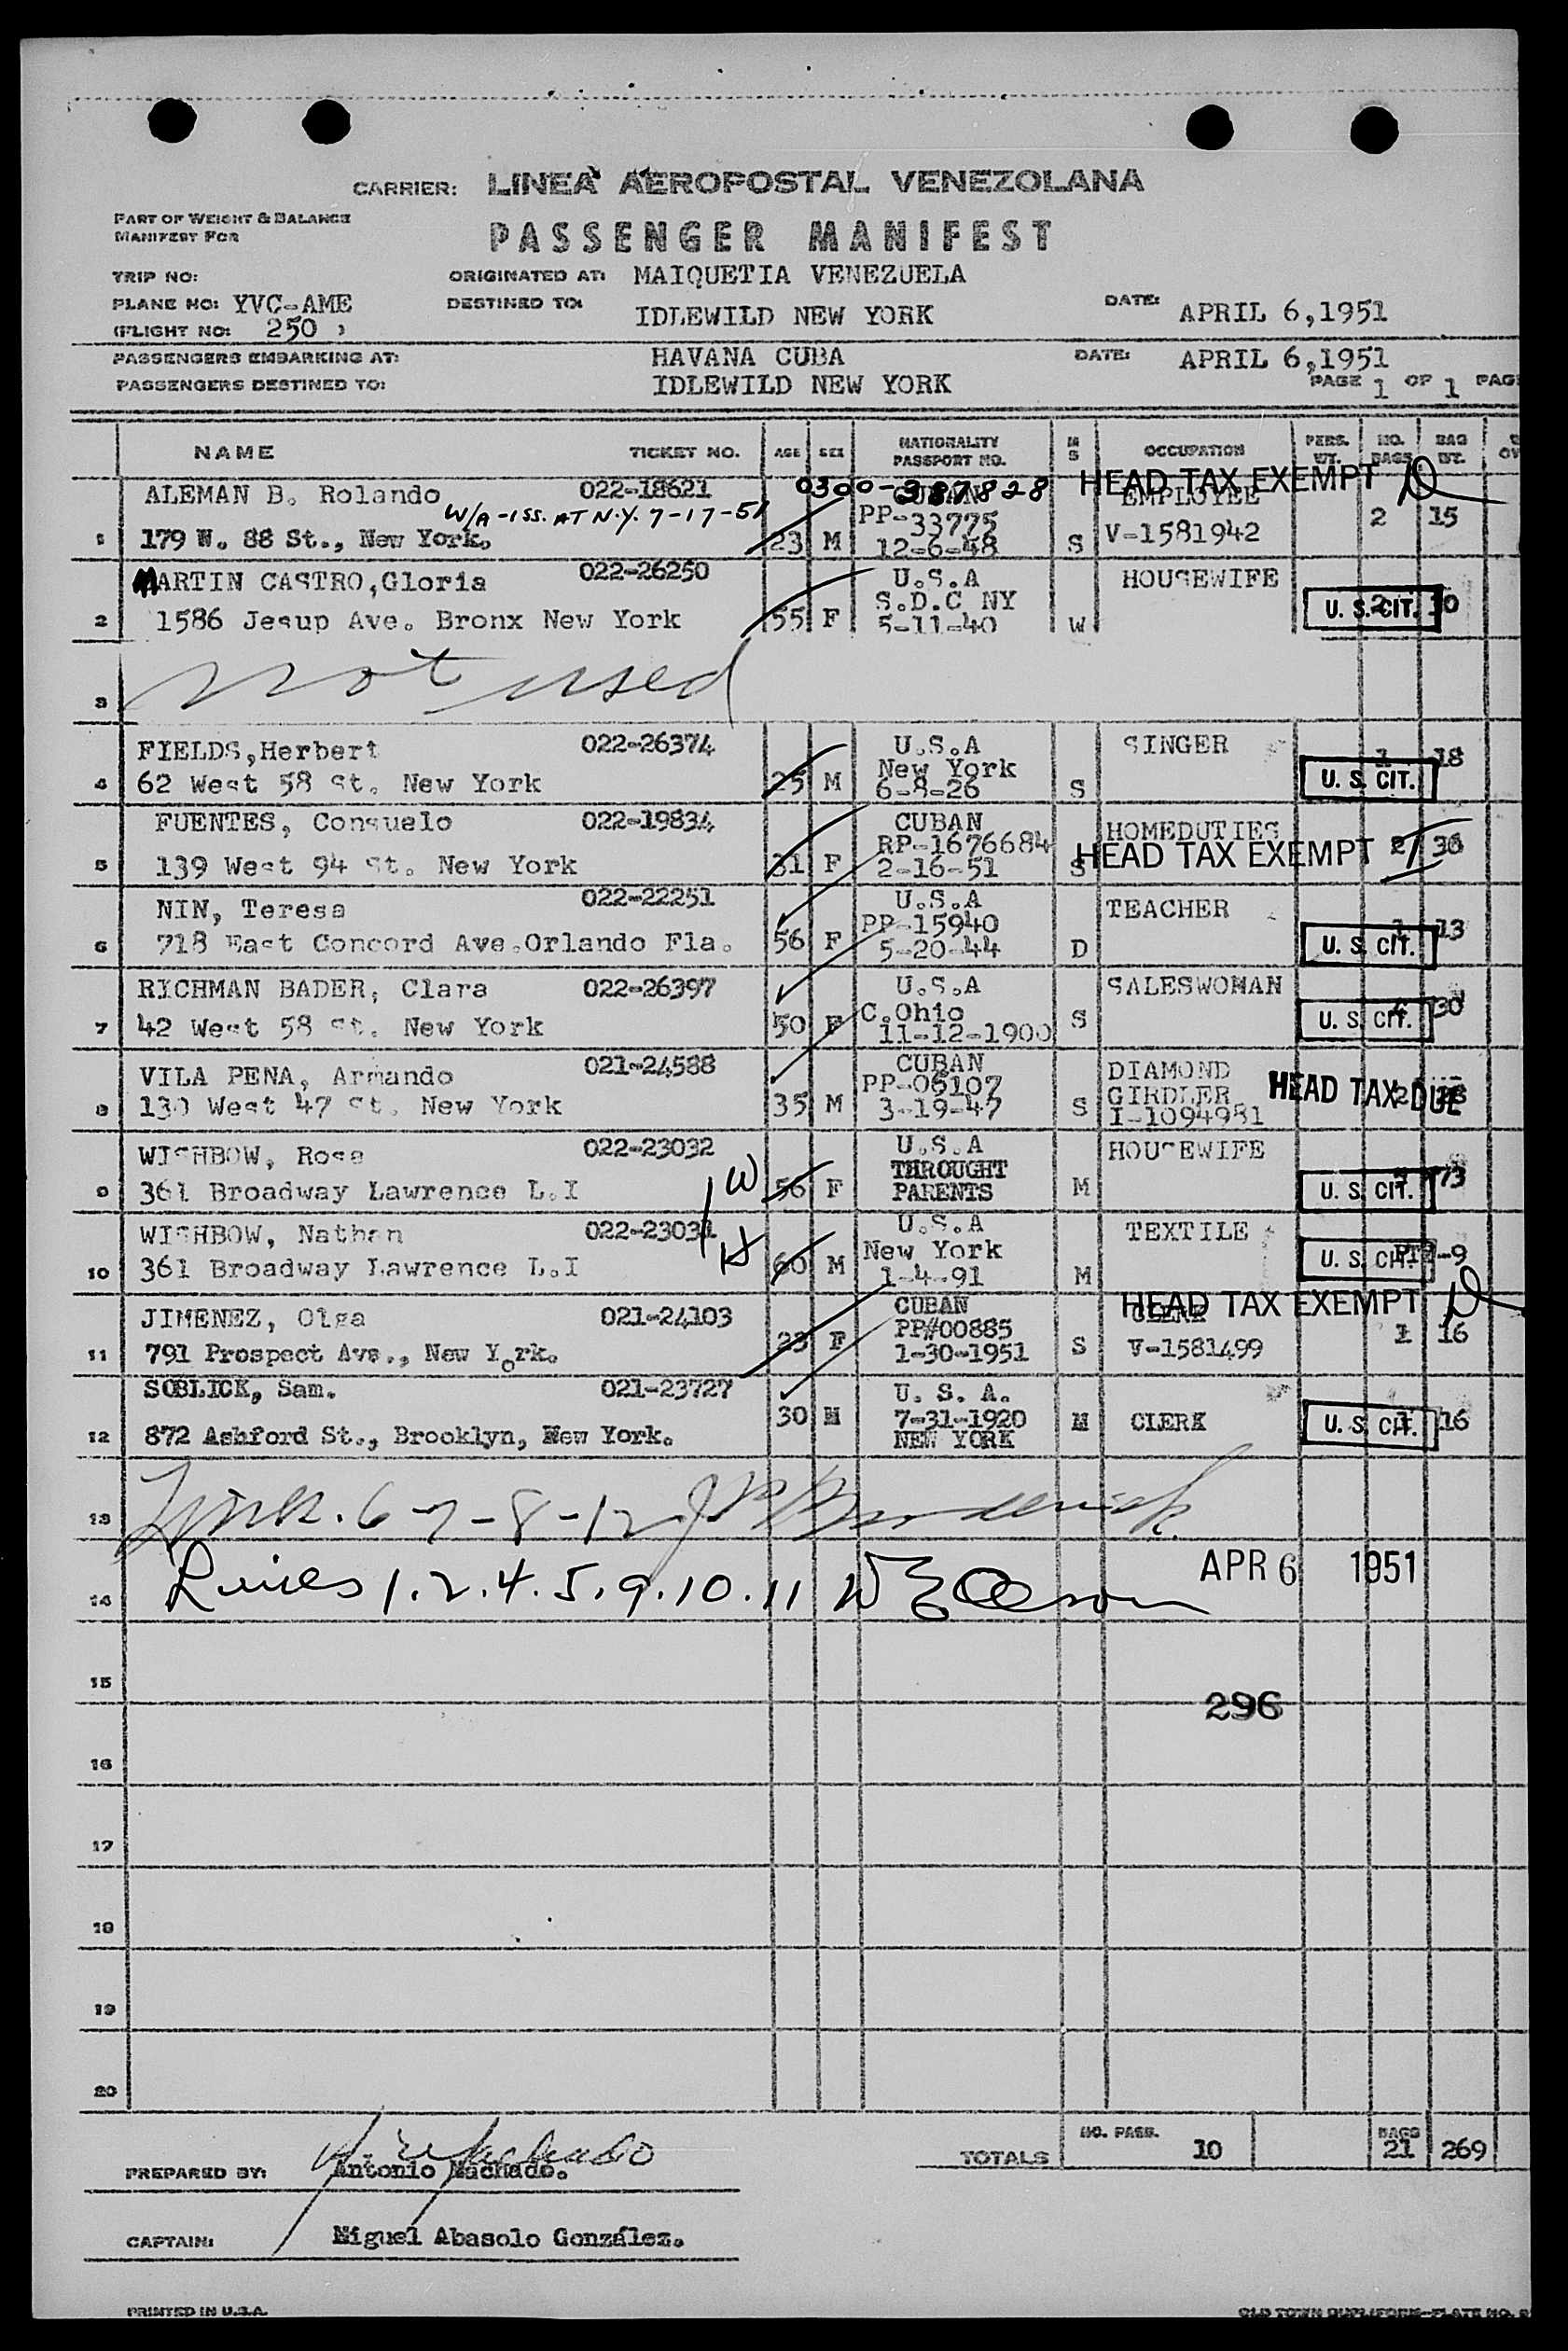 CARRIER: LINEA AEROPOSTAL VENEZOLANA
PART OF WEIGHT & BALANCE
MANIFEST FOR
PASSENGER MANIFEST
TRIP NO: ORIGINATED AT: MAIQUETIA VENEZUELA
PLANE NO: YVC-AME DESTINED TO: IDLEWILD NEW YORK DATE: APRIL 6,1951
(FLIGHT NO: 250 )
PASSENGERS EMBARKING AT: HAVANA CUBA DATE: APRIL 6,1951
PASSENGERS DESTINED TO: IDLEWILD NEW YORK
PAGE 1 OF 1 PAG
NAME TICKET NO. AGE SEX NATIONALITY PASSPORT NO. M S OCCUPATION PERS. WT. NO. BAGS BAG WT.
ALEMAN B. Rolando 022-18621 0300-387828 CUBAN HEAD TAX EXEMPT EMPLOYEE
W/A-ISS. AT N.Y. 7-17-51 PP-33775 2 15
1 179 W. 88 St., New York. 23 M 12-6-48 S V-1581942
MARTIN CASTRO,Gloria 022-26250 U.S.A HOUSEWIFE
S.D.C NY U. S. CIT.
2 1586 Jesup Ave. Bronx New York 55 F 5-11-40 W
3 not used
FIELDS,Herbert 022-26374 U.S.A SINGER 1 18
New York
4 62 West 58 St. New York 25 M 6-8-26 S U. S. CIT.
FUENTES, Consuelo 022-19834 CUBAN HOMEDUTIES
RP-1676684 HEAD TAX EXEMPT 2 36
5 139 West 94 St. New York 31 F 2-16-51 S
NIN, Teresa 022-22251 U.S.A TEACHER
PP-15940 1 13
6 718 East Concord Ave.Orlando Fla. 56 F 5-20-44 D U. S. CIT.
RICHMAN BADER, Clara 022-26397 U.S.A SALESWOMAN
C.Ohio 30
7 42 West 58 St. New York 50 F 11-12-1900 S U. S. CIT.
VILA PENA, Armando 021-24588 CUBAN DIAMOND
PP-06107 GIRDLER HEAD TAX DUE 2
8 130 West 47 St. New York 35 M 3-19-47 S I-1094981
WISHBOW, Rose 022-23032 U.S.A HOUSEWIFE
W THROUGHT 73
9 361 Broadway Lawrence L.I 56 F PARENTS M U. S. CIT.
WISHBOW, Nathan 022-23031 U.S.A TEXTILE
H New York U. S. CIT.
10 361 Broadway Lawrence L.I 60 M 1-4-91 M
JIMENEZ, Olga 021-24103 CUBAN HEAD TAX EXEMPT CLERK
PP#00885 1 16
11 791 Prospect Ave., New York. 23 F 1-30-1951 S V-1581499
SOBLICK, Sam. 021-23727 U. S. A.
30 M 7-31-1920 M CLERK U. S. CIT. 1 16
12 872 Ashford St., Brooklyn, New York. NEW YORK
13 6-7-8-12
14 Lines 1.2.4.5.9.10.11 APR 6 1951
15
296
16
17
18
19
20
TOTALS NO. PASS. 10 BAGS 21 269
PREPARED BY: Antonio Machado.
CAPTAIN: Miguel Abasolo González.
PRINTED IN U.S.A. OLD TOWN DUPLIFORM-PLATE NO.